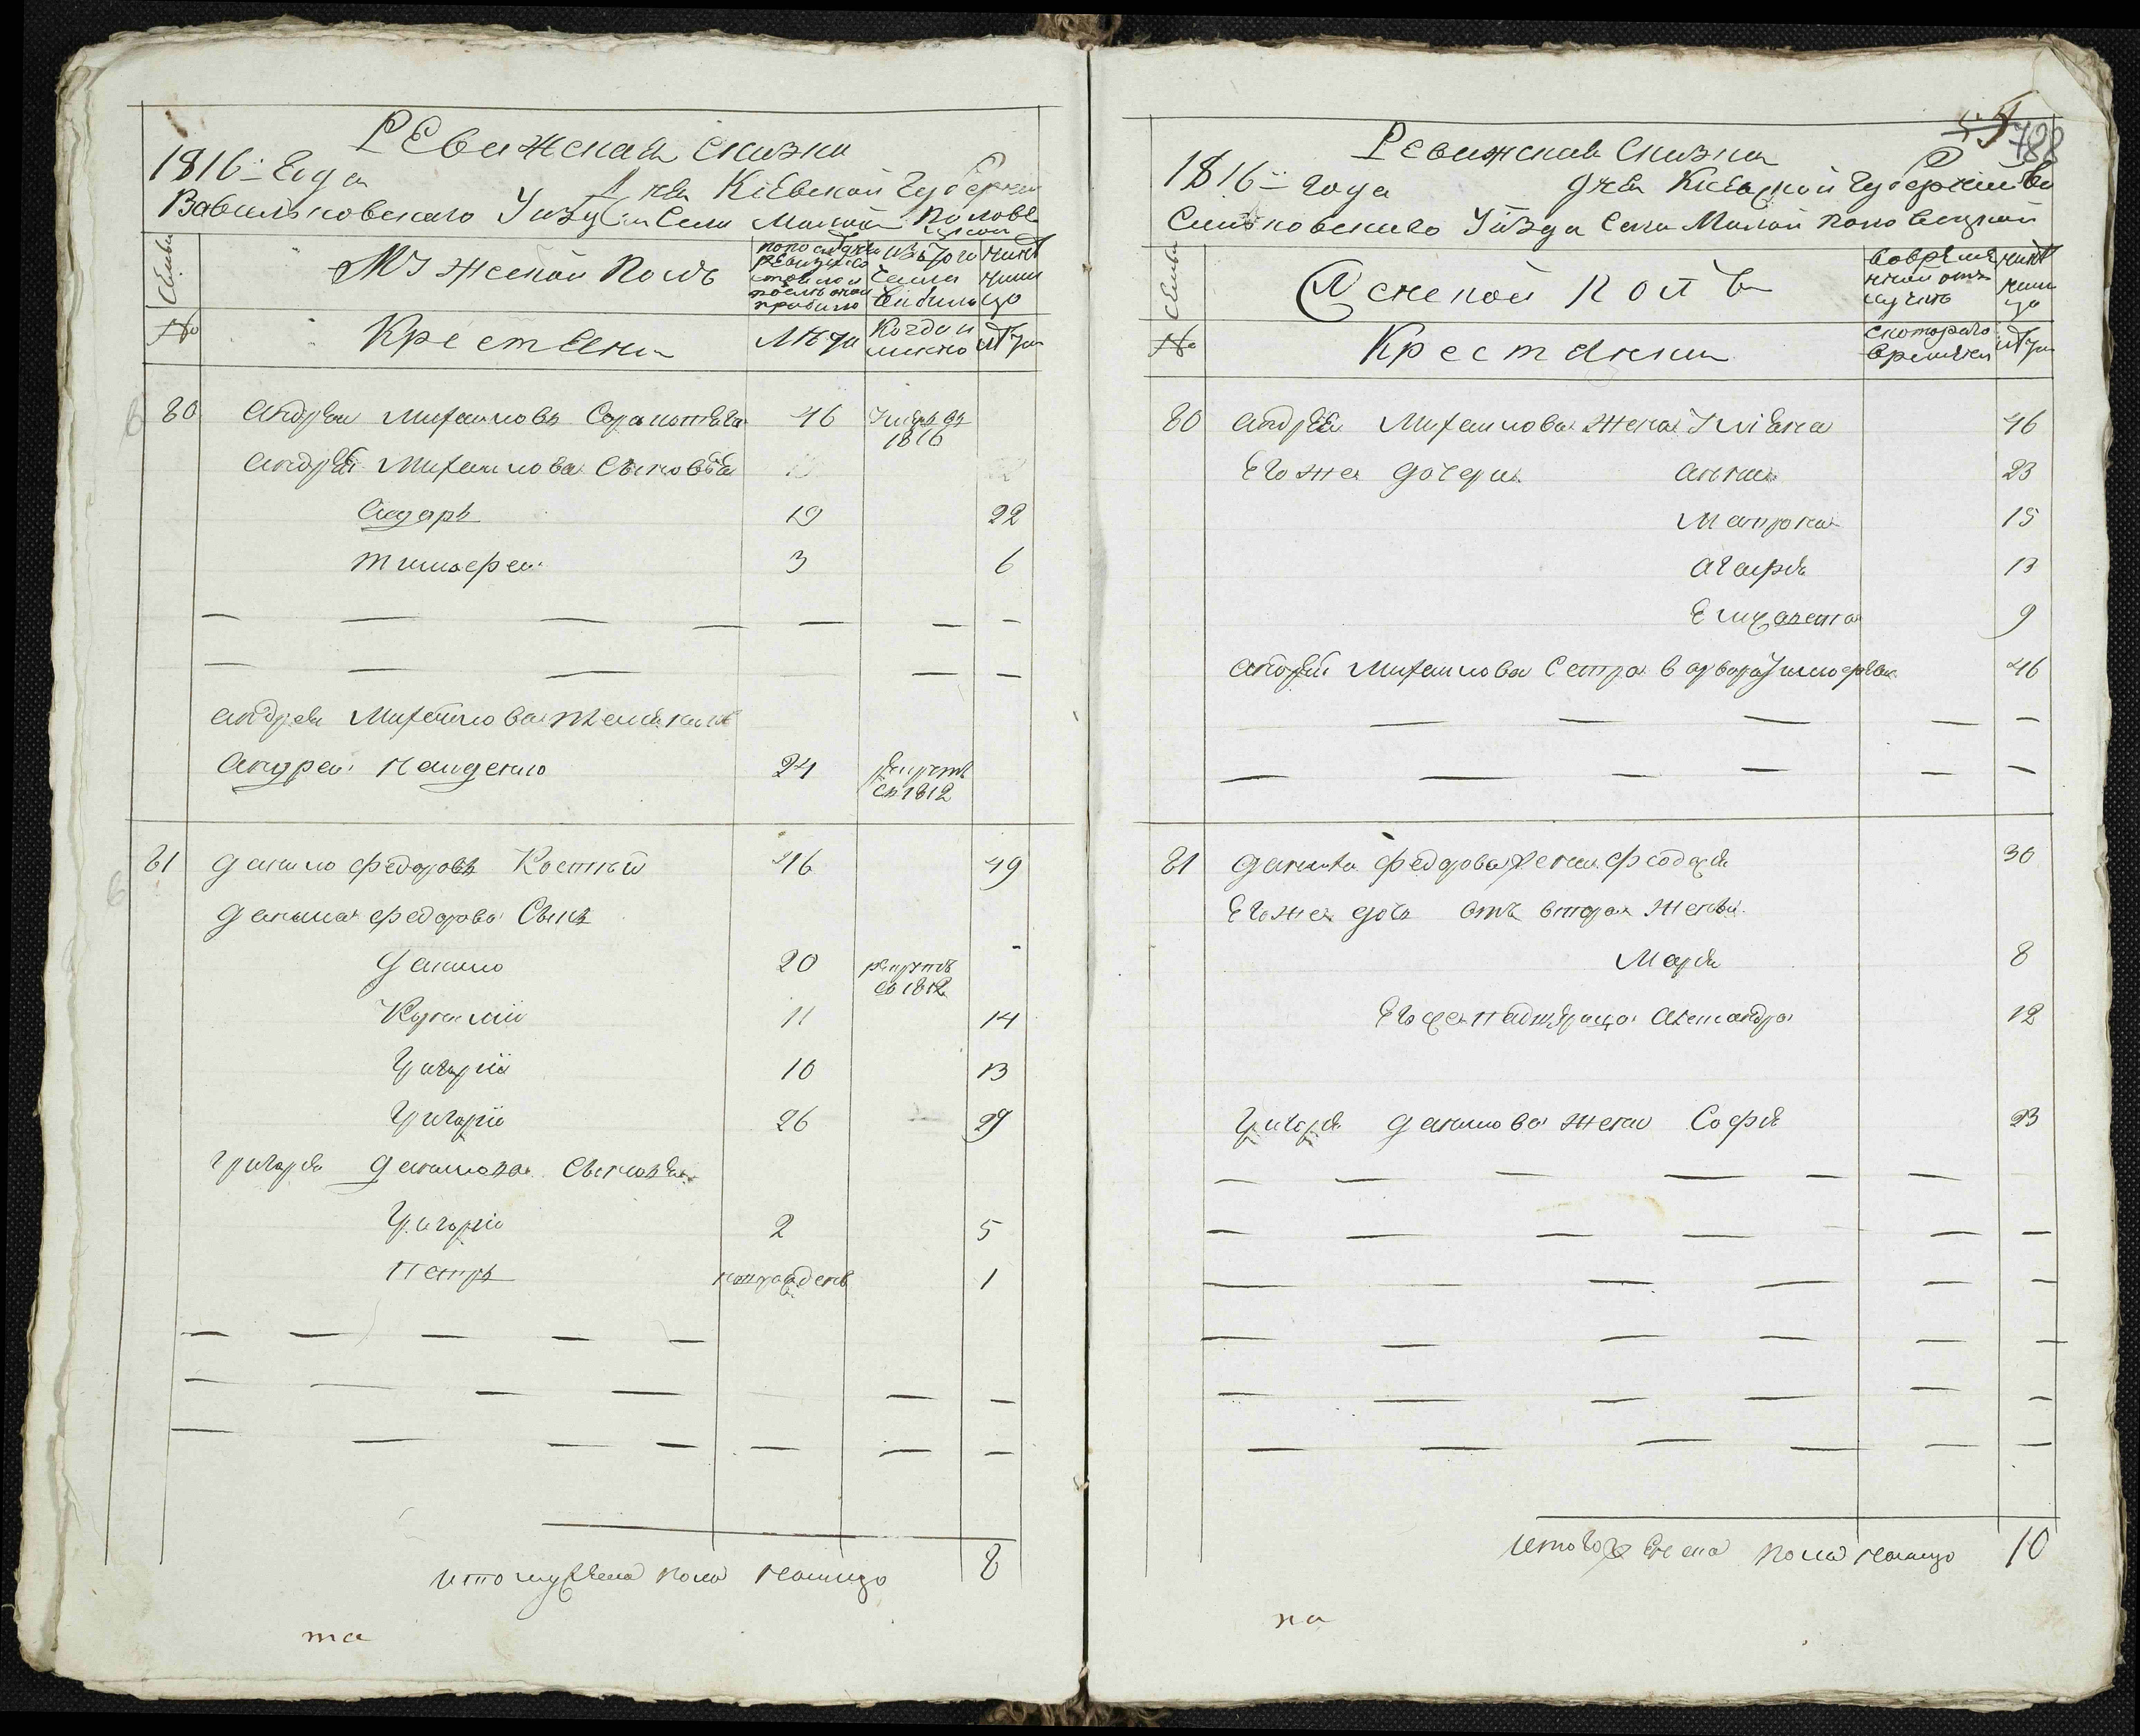 Ревижская сказка
1816 Года Дня Кіевской Губернии
Васильковского Уезда Села Малой Половецкой
Семьи
Мужеской Полъ
Изъ того числа выбыло
ныне на лицо
№
Крестьени
Лѣта
Когда именно
лѣта
80 Андреи Михаиловъ 46 Умеръ въ 1816
Андрея Михаилова Сыновья
Сидоръ 19 22
Тимофеи 3 6
Андрея Михаилова племянникъ
Андреи Найденко 24 рекрутъ съ 1812
81 Данило Федоровъ Костный 46 49
Данила Федорова Сынъ
Данило 20 рекрутъ съ 1812
Корнилий 11 14
Григорій 10 13
Григорій 26 29
Григорія Данилова Сыновья
Григорій 2 5
Петръ новорожденъ 1
Итого мужеска пола налицо 8
та
788
Ревижская Сказка
1816 года Дня Киевской Губернии Ва
сильковского Уезда Села Малой Половецкой
Семьи
Женской Полъ
во временной отлучке
ныне на лицо
№
Крестянки
с которого времени
лѣта
80 Андрея Михаилова жена Улияна 46
Его же дочери Анна 23
Матрона 15
Агафія 13
Елизавета 9
Андрея Михаилова Сестра Варвара 46
81 Данила Федорова жена Феодосия 30
Его же дочь отъ втораи жены
Марія 8
Его же падщерица Александра 12
Григорія Данилова жена Софія 23
Итого женска пола налицо 10
на